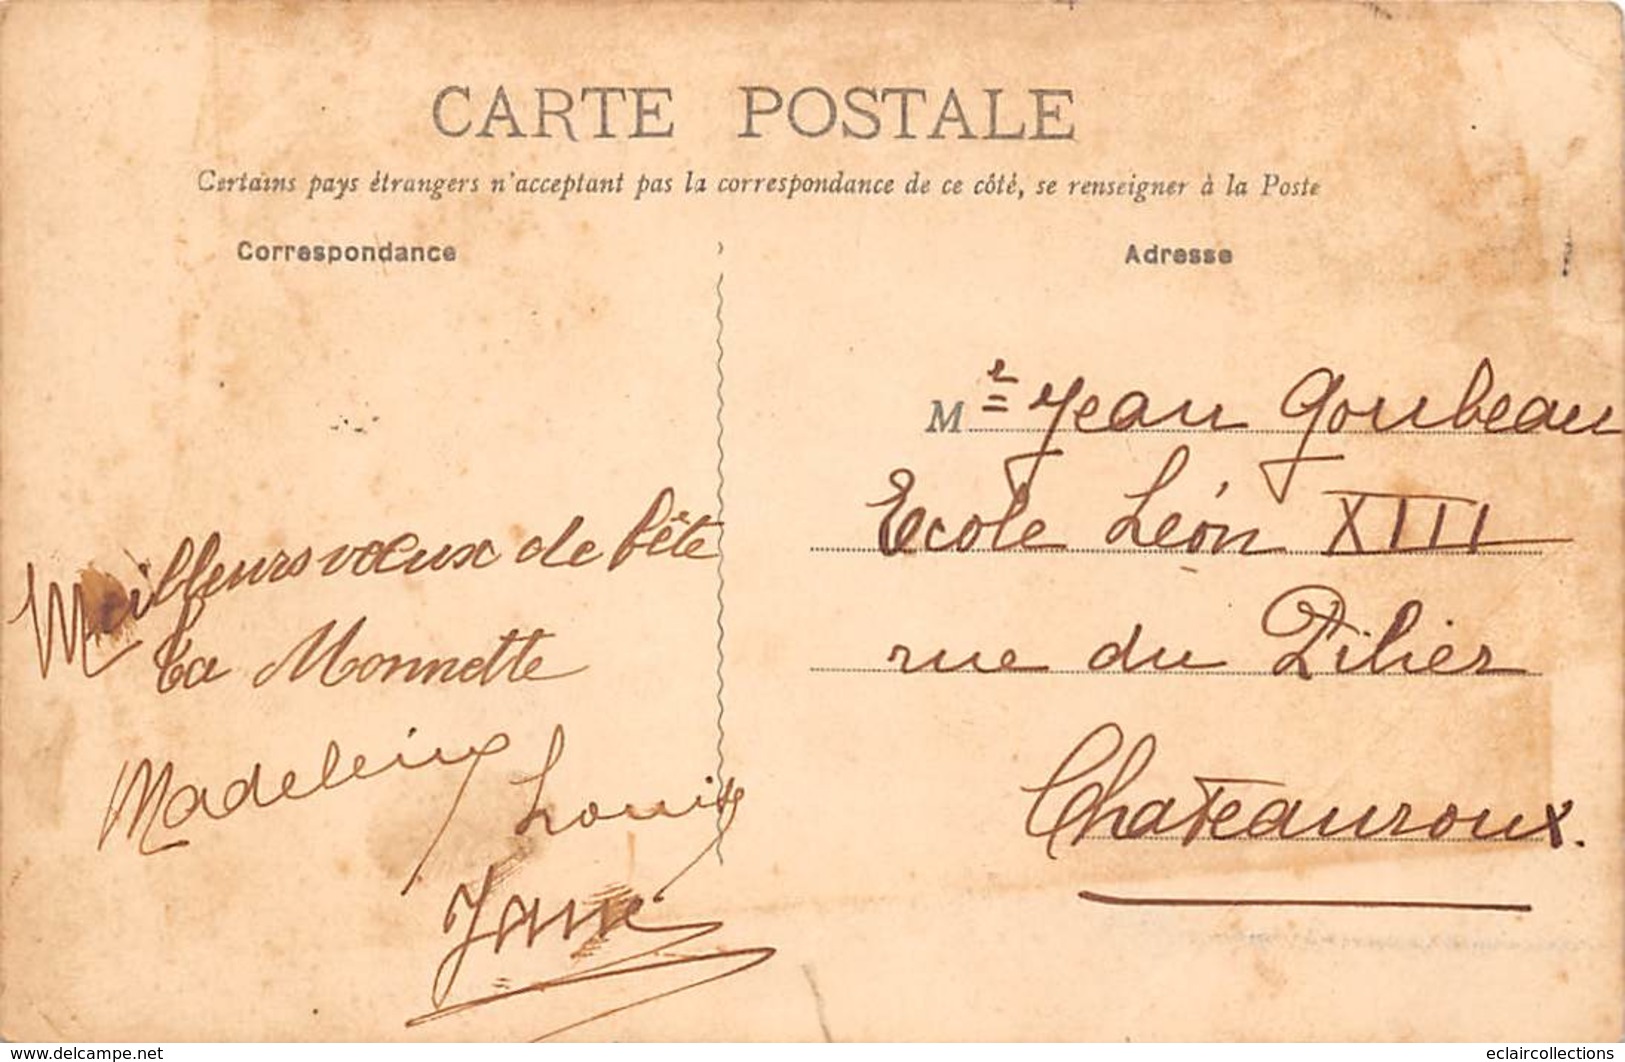 CARTE POSTALE
Certains pays étrangers n'acceptant pas la correspondance de ce côté, se renseigner à la Poste
Correspondance
Adresse
Meilleurs vœux de fête
Ta Monnette
Madeleine
Louis
Mr Jean Goubeau
Ecole Léon XIII
rue du Pilier
Chateauroux.
www.delcampe.net
eclaircollections